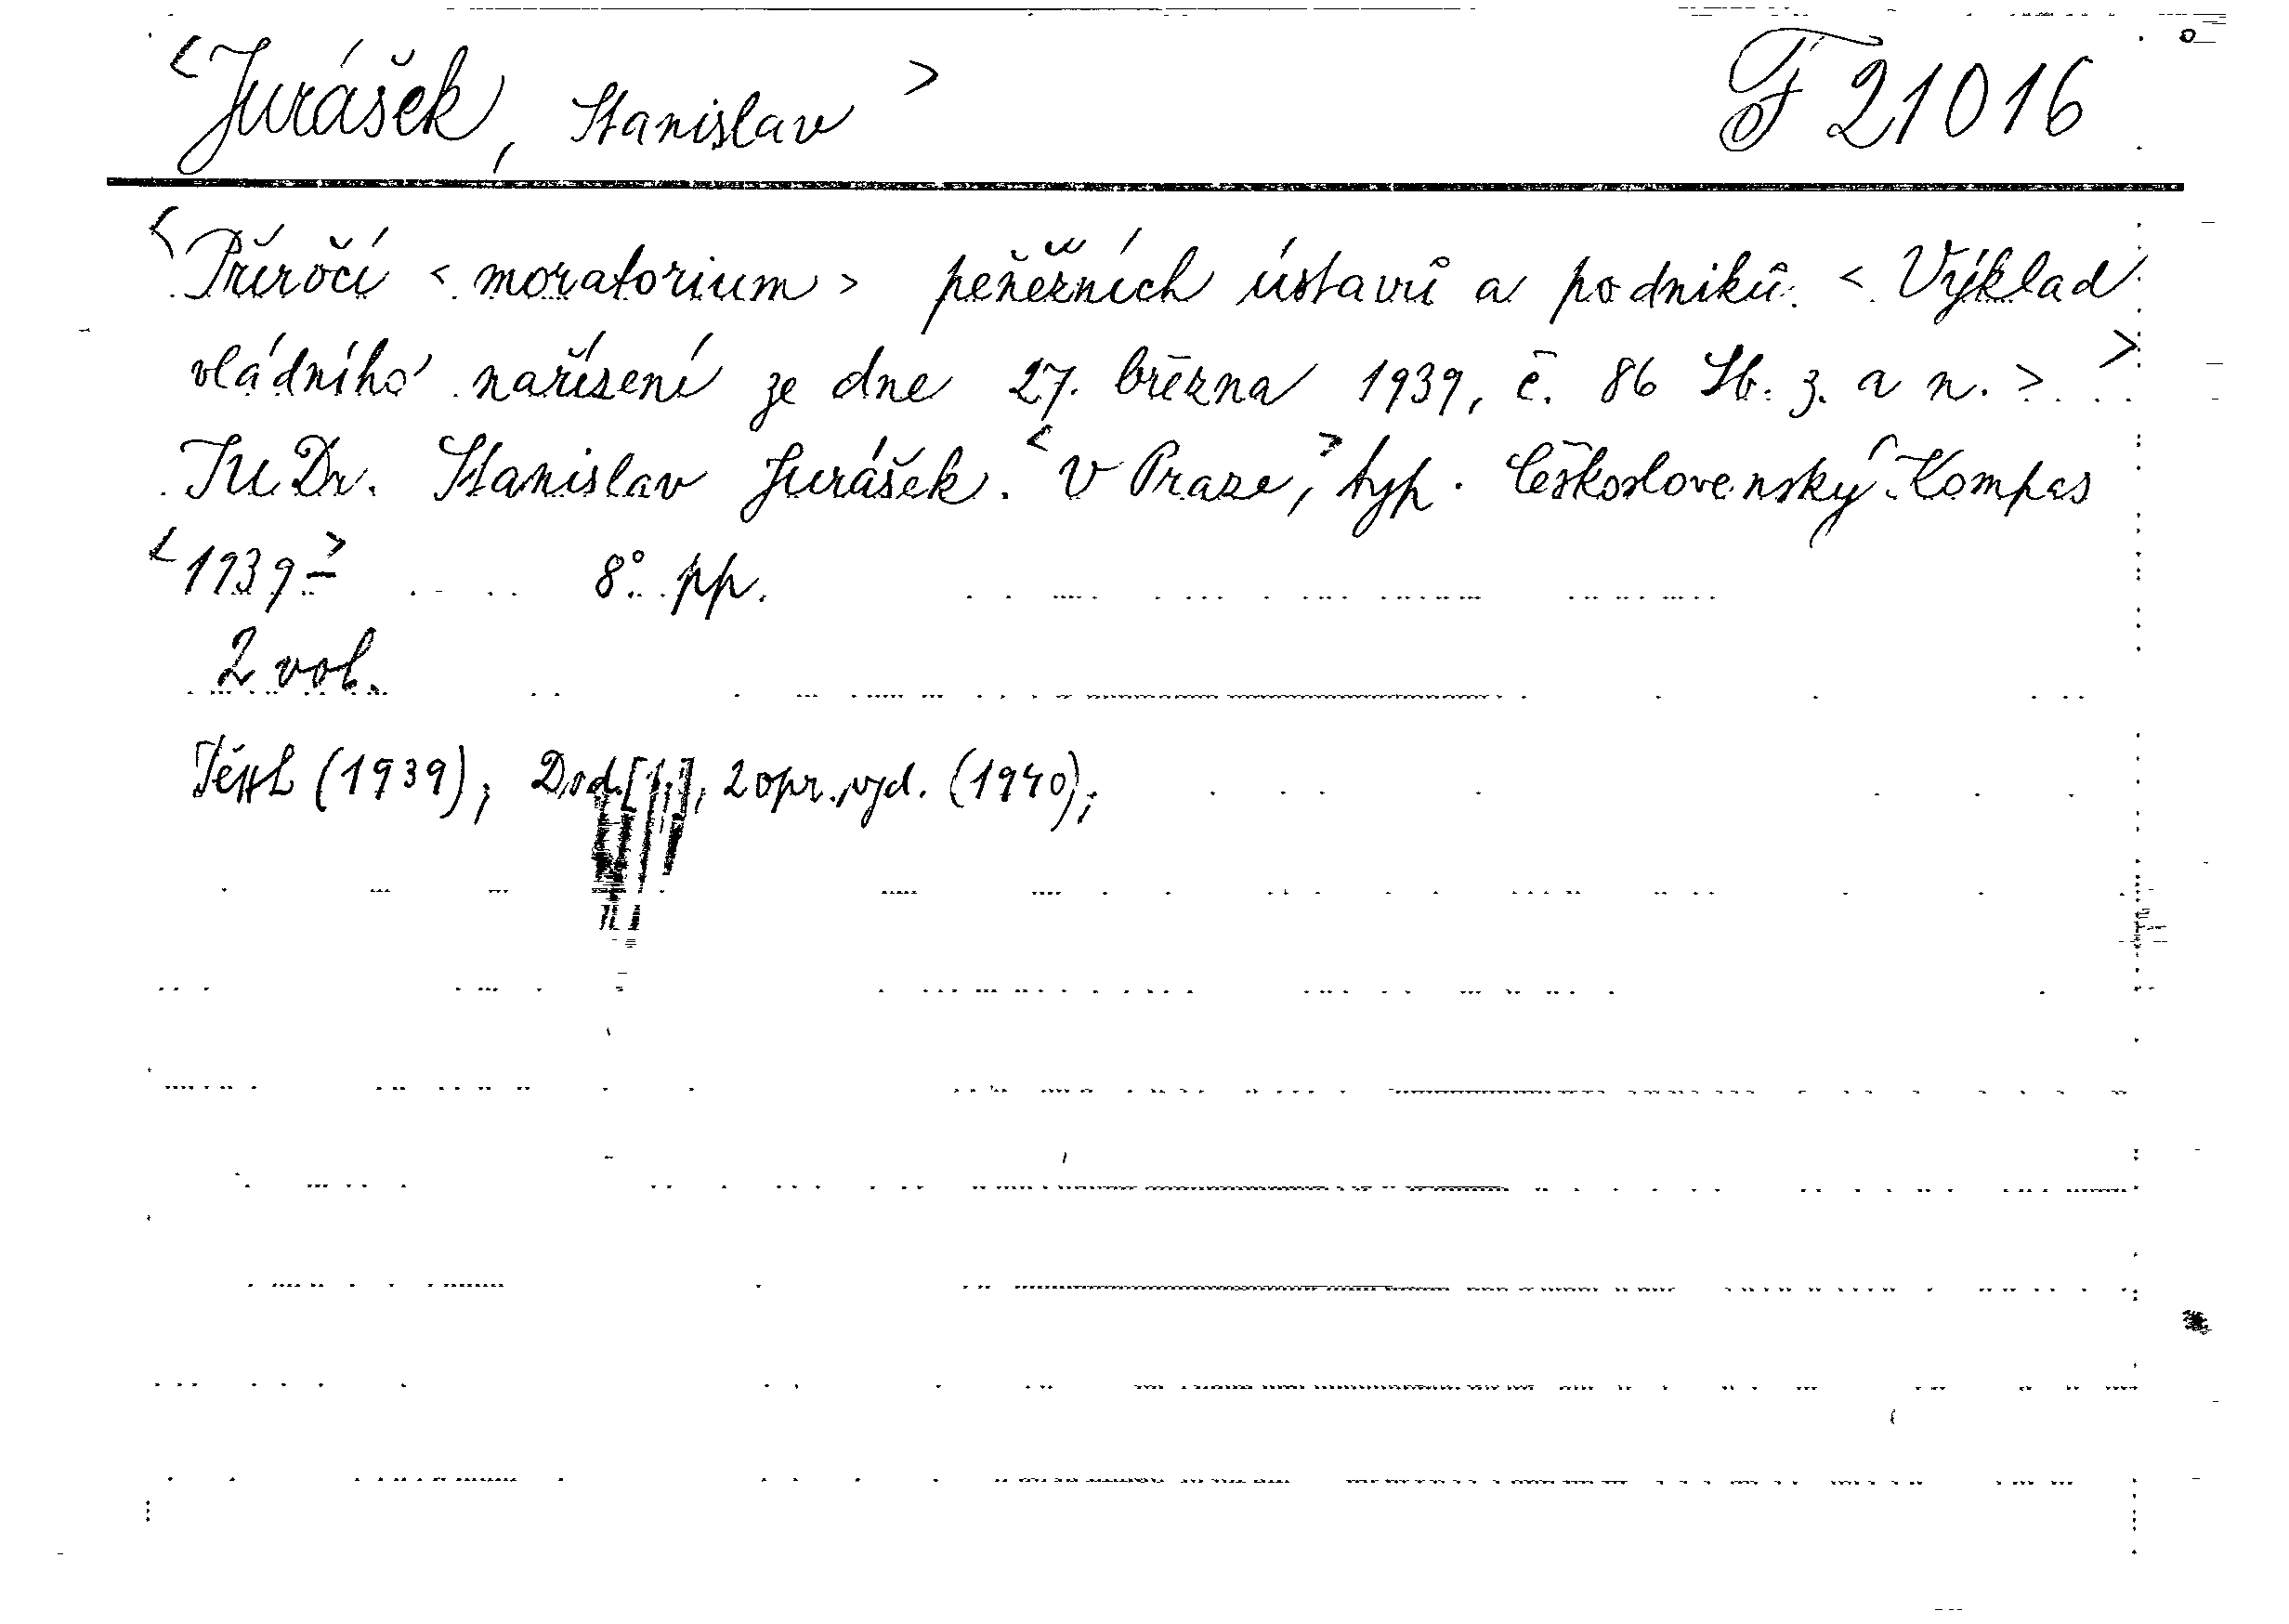 <Jurášek, Stanislav> F 21016
<Příročí <moratorium> peněžních ústavů a podniků. <Výklad
vládního nařízení ze dne 27. března 1939, č. 86 Sb. z. a n.>>
JUDr. Stanislav Jurášek. <V Praze,> typ. Československý Kompas
<1939-> 8° pp.
2 vol.
(1939); Dod. [1.], 2 opr. vyd. (1940);